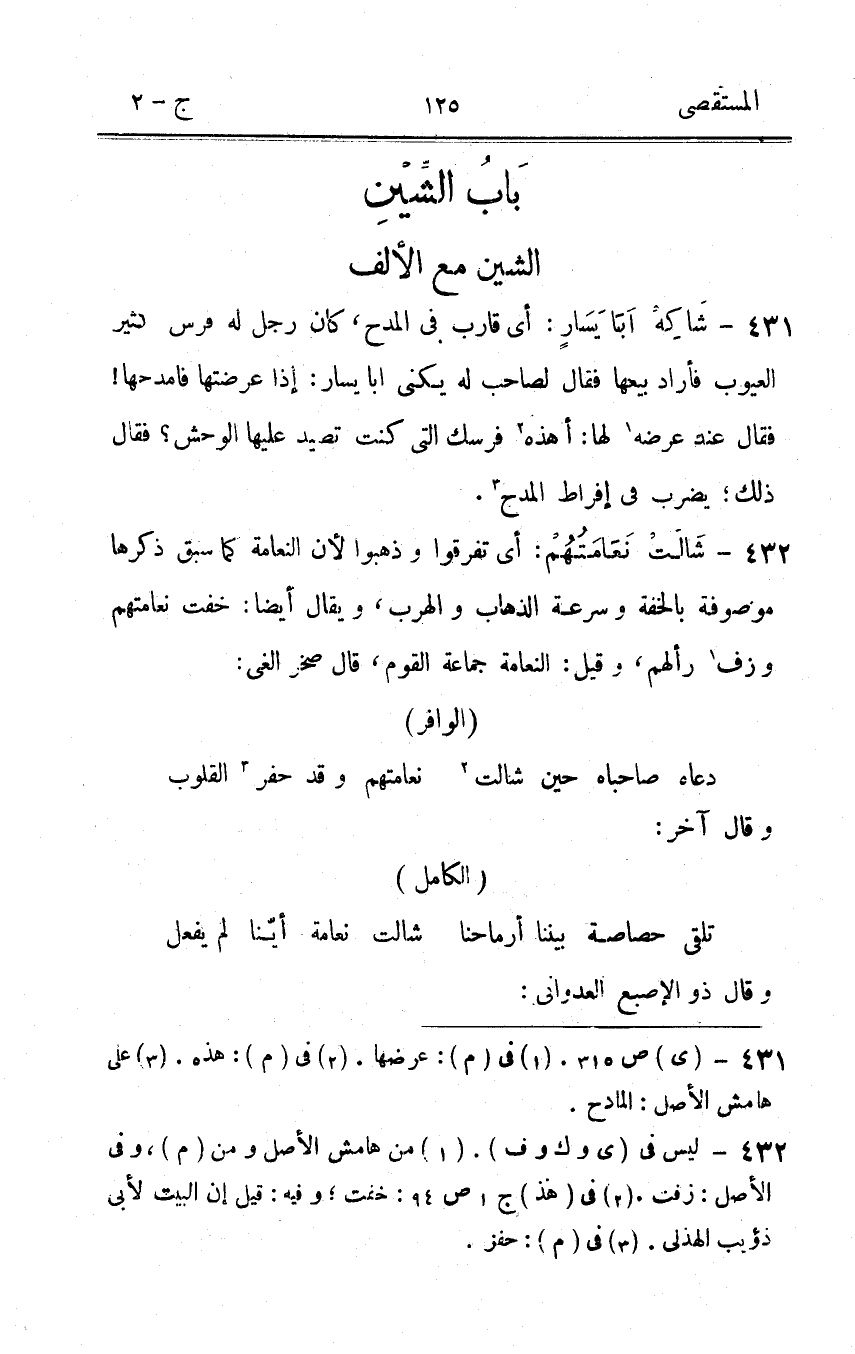 المستقصى ١٢٥ ج - ٢
بَابُ الشِّيْنِ
الشين مع الألف
٤٣١ - شَاكِهْ اَبَا يَسَارٍ: أى قارب فى المدح، كان رجل له فرس كثير
العيوب فأراد بيعها فقال لصاحب له يكنى ابا يسار: إذا عرضتها فامدحها!
فقال عند عرضه١ لها: أ هذه٢ فرسك التى كنت تصيد عليها الوحش؟ فقال
ذلك؛ يضرب فى إفراط المدح٣ .
٤٣٢ - شَالَتْ نَعَامَتُهُمْ: أى تفرقوا و ذهبوا لأن النعامة كما سبق ذكرها
موصوفة بالخفة و سرعة الذهاب و الهرب، و يقال أيضا: خفت نعامتهم
و زف١ رألهم، و قيل: النعامة جماعة القوم، قال صخر الغى:
(الوافر)
دعاه صاحباه حين شالت٢ نعامتهم و قد حفر٣ القلوب
و قال آخر:
(الكامل)
تلقى حصاصة بيننا أرماحنا شالت نعامة أيّنا لم يفعل
و قال ذو الإصبع العدوانى:
٤٣١ - (ى) ص ٣١٥ . (١) فى (م): عرضها . (٢) فى (م): هذه . (٣) على
هامش الأصل: المادح .
٤٣٢ - ليس فى (ى و ك و ف) . (١) من هامش الأصل و من (م)، و فى
الأصل: زفت .(٢) فى (هذ) ج ١ ص ٩٤: خفت؛ و فيه: قيل إن البيت لأبى
ذؤيب الهذلى . (٣) فى (م): حفز .